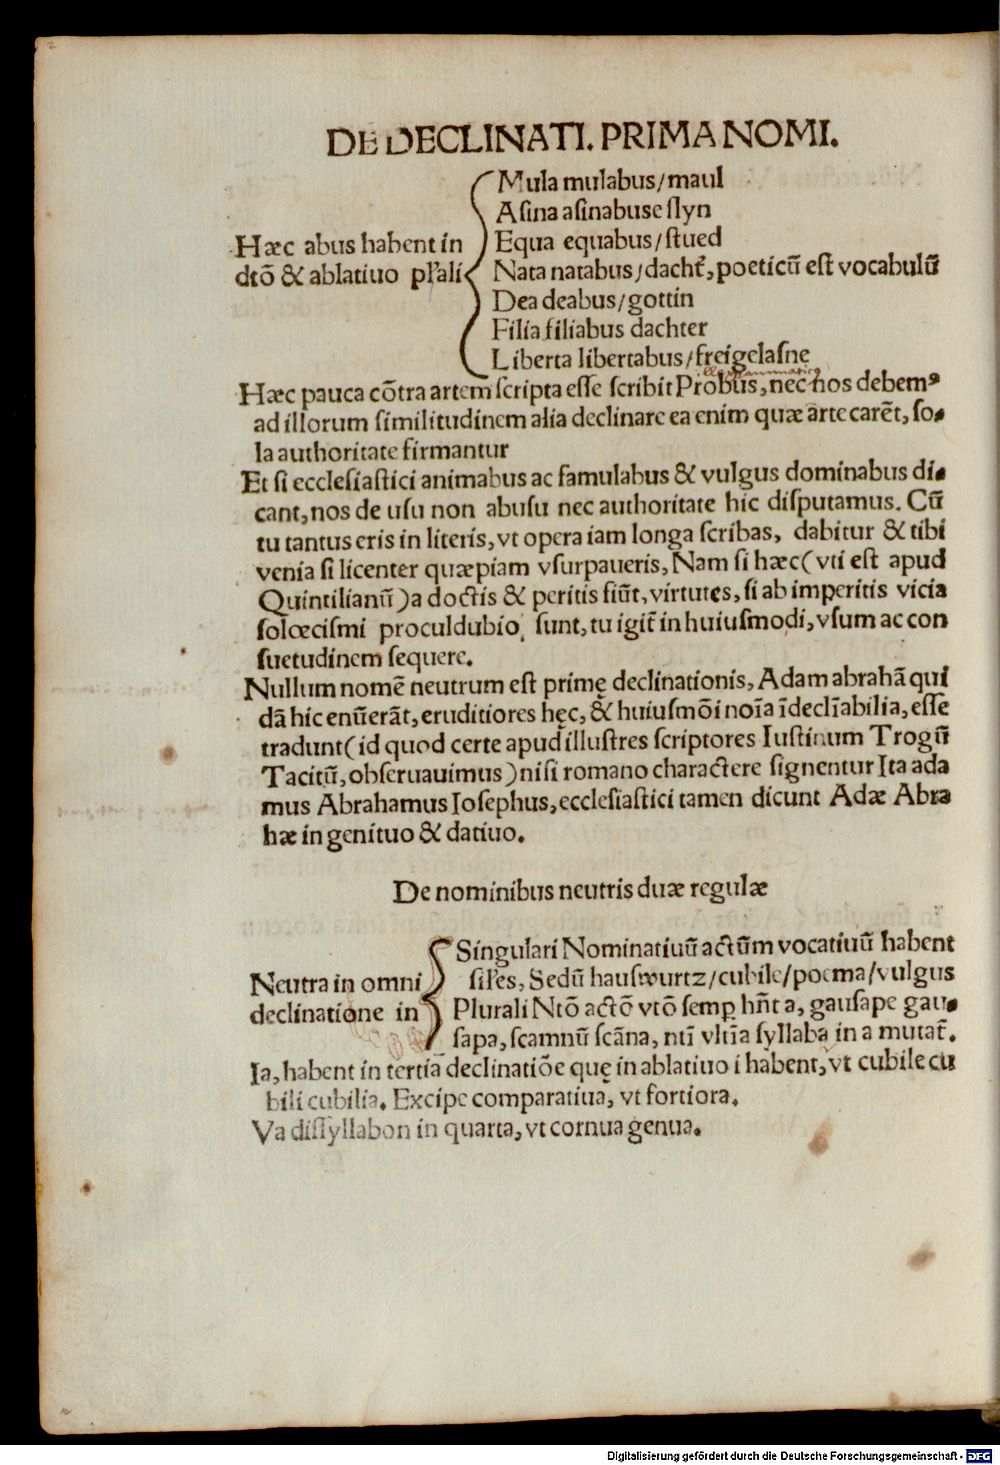 DE DECLINATI. PRIMA NOMI.
Hæc abus habent in
dtō & ablatiuo pľali
Mula mulabus/maul
Asina asinabus eslyn
Equa equabus/stued
Nata natabus/dacht̃, poeticū est vocabulū
Dea deabus/gottin
Filia filiabus dachter
Liberta libertabus/freigelasne
ille grammatico
Hæc pauca cōtra artem scripta esse scribit Probus, nec nos debemꝰ
ad illorum similitudinem alia declinare ea enim quæ arte carēt, so-
la authoritate firmantur
Et si ecclesiastici animabus ac famulabus & vulgus dominabus di-
cant, nos de usu non abusu nec authoritate hic disputamus. Cū
tu tantus eris in literis, vt opera iam longa scribas, dabitur & tibi
venia si licenter quæpiam vsurpaueris, Nam si hæc ( vti est apud
Quintilianū ) a doctis & peritis fiūt, virtutes, si ab imperitis vicia
solœcismi proculdubio sunt, tu igit̃ in huiusmodi, vsum ac con
suetudinem sequere.
Nullum nomē neutrum est primę declinationis, Adam abrahā qui
dā hic enūerāt, eruditiores hęc, & huiusmōi noīa īdeclīabilia, esse
tradunt ( id quod certe apud illustres scriptores Iustinum Trogū
Tacitū, obseruauimus ) nisi romano charactere signentur Ita ada
mus Abrahamus Iosephus, ecclesiastici tamen dicunt Adæ Abra
hæ in genituo & datiuo.
De nominibus neutris duæ regulæ
Neutra in omni
declinatione in
Singulari Nominatiuū actūm vocatiuū habent
siľes, Sedū hauswurtz/cubile/poema/vulgus
Plurali Ntō actō vtō semꝑ hn̄t a, gausape gau-
sapa, scamnū scāna, ntī vltīa syllaba in a mutat̃.
Ia, habent in tertia declinatiōe quę in ablatiuo i habent, vt cubile cu
bili cubilia. Excipe comparatiua, vt fortiora.
Va dissyllabon in quarta, vt cornua genua.
Digitalisierung gefördert durch die Deutsche Forschungsgemeinschaft - DFG